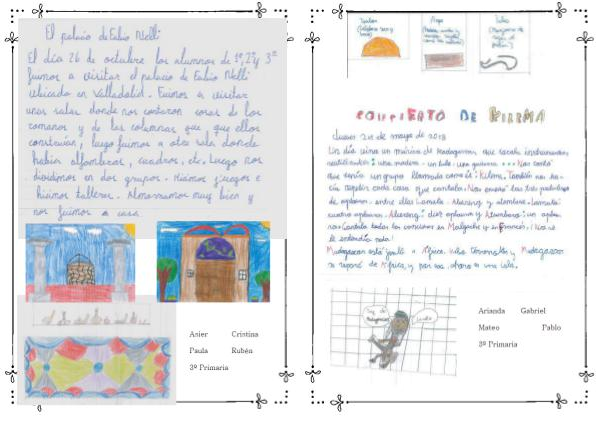 El palacio de Fabio Nelli
El día 26 de octubre los alumnos de 1º, 2º y 3º
fuimos a visitar el palacio de Fabio Nelli
ubicado en Valladolid. Fuimos a visitar
unas salas donde nos contaron cosas de los
romanos y de las columnas que que ellos
construían, luego fuimos a otra sala donde
había alfombras, cuadros, etc. Luego nos
dividimos en dos grupos. Hicimos juegos e
hicimos talleres. Almorzamos muy bien y
nos fuimos a casa.
Asier Cristina
Paula Rubén
3º Primaria
CONCIERTO DE KILEMA
Jueves 24 de mayo de 2018
Un día vino un músico de Madagascar, que tocaba instrumentos
una madera un tubo una guitarra Nos contó
que tenía un grupo llamado como él: Kilema. También nos ha-
cía repetir cada cosa que cantaba. Nos enseñó las tres palabras
de aplauso
cuatro aplausos diez aplausos y un aplau-
so. Cantaba todas las canciones en Malgache y en Francés. No se
le entendía nada.
Madagascar está junto a África. Hubo terremotos y Madagascar
se separó de África, y por eso, ahora es una isla.
Soy de
Madagascar
Arianda Gabriel
Mateo Pablo
3º Primaria